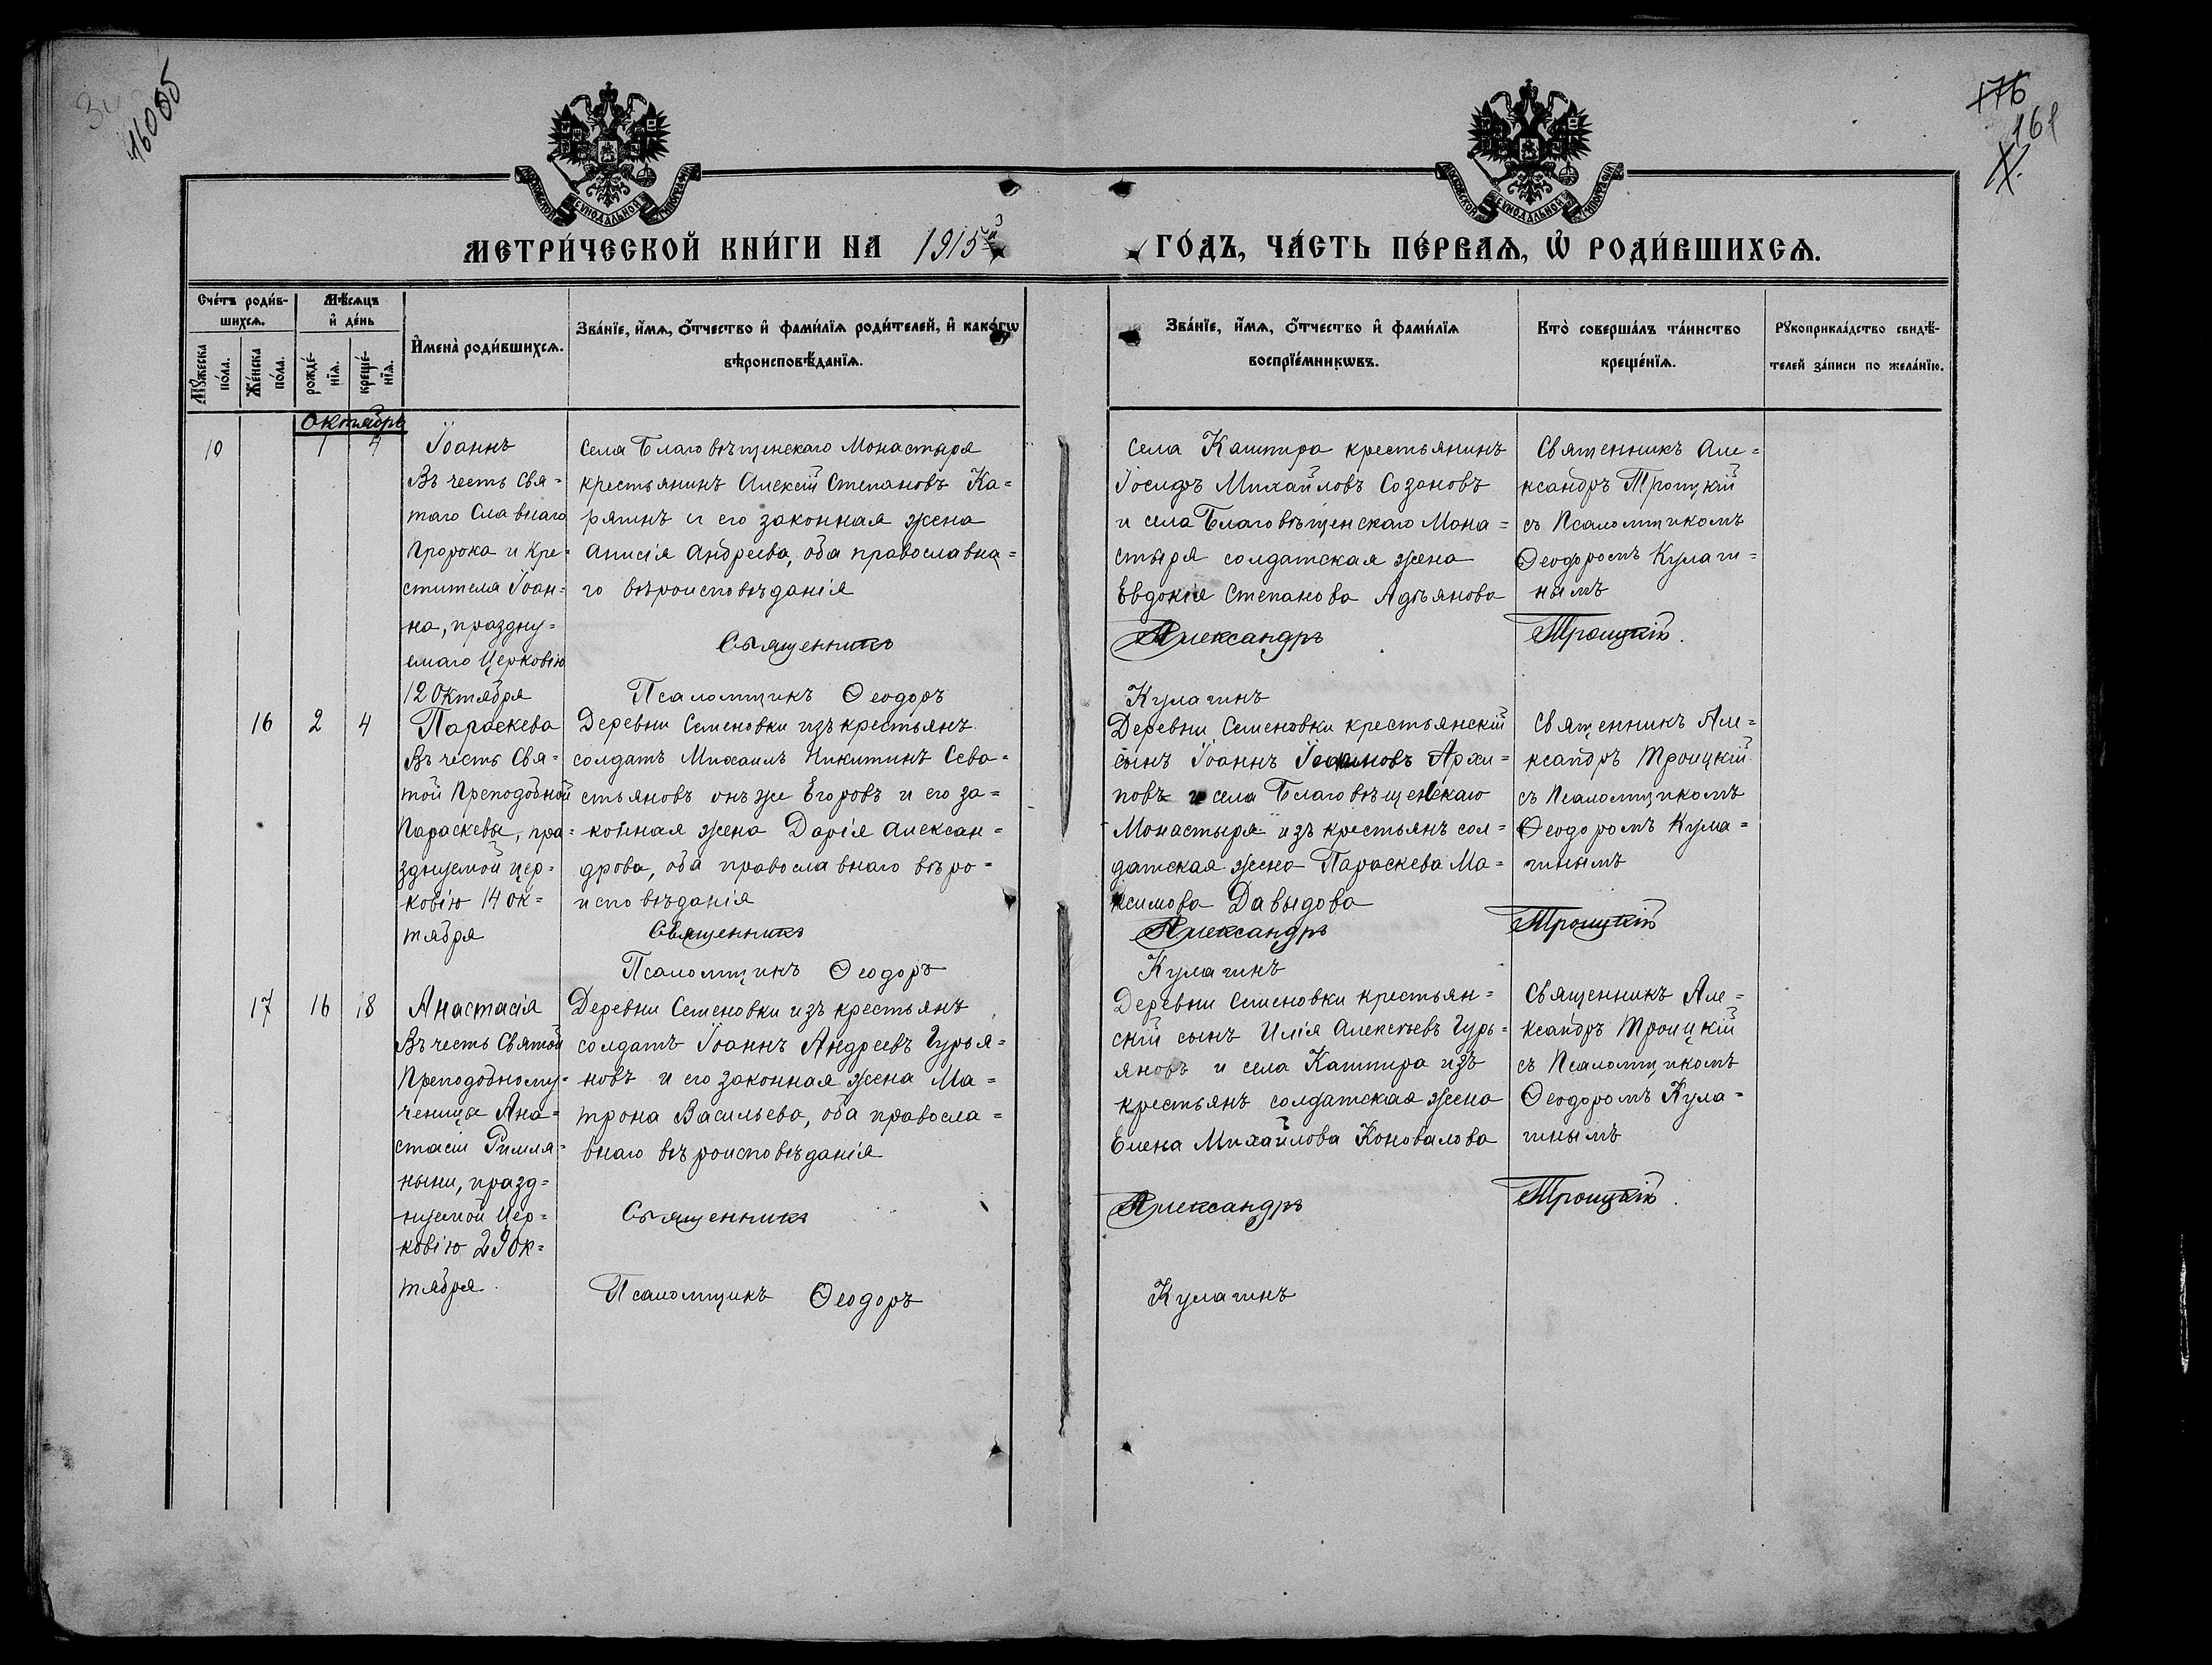 16085
176
161
МОСКОВСКОЙ СѴНОДАЛЬНОЙ ТИПОГРАФІИ
МОСКОВСКОЙ СѴНОДАЛЬНОЙ ТИПОГРАФІИ
МЕТРИ́ЧЕСКОЙ КНИ́ГИ НА 1915й
ГО́ДЪ, ЧА́СТЬ ПЕ́РВАѦ, Ѡ҆ РОДИ́ВШИХСѦ.
Сче́тъ роди́в-
шихсѧ.
Мѣ́сѧцъ
и҆ де́нь
Мꙋ́жеска
по́ла.
Же́нска
по́ла.
рожде́-
нїѧ.
креще́-
нїѧ.
И҆мена̀ роди́вшихсѧ.
Зва́нїе, и҆́мѧ, ѻ҆́тчество и҆ фами́лїѧ роди́телей, и҆ како́гѡ
вѣроисповѣ́данїѧ.
Зва́нїе, и҆́мѧ, ѻ҆́тчество и҆ фами́лїѧ
воспрїе́мникѡвъ.
Кто̀ соверша́лъ та́инство
креще́нїѧ.
Рꙋкоприкла́дство свидѣ́-
телей за́писи по жела́нїю.
Октябрь
10
1
4
Іоаннъ
Въ честь Свя=
таго Славнаго
Пророка и Кре=
стителя Іоан=
на, праздну=
емаго Церковію
12 Октября
Села Благовѣщенскаго Монастыря
крестьянинъ Алексій Степановъ Ка=
рягинъ и его законная жена
Анисія Андреева, оба православна=
го вѣроисповѣданія
Священникъ
Псаломщикъ Ѳеодоръ
Села Каштира крестьянинъ
Іосифъ Михайловъ Созоновъ
и села Благовѣщенскаго Мона=
стыря солдатская жена
Евдокія Степанова Адъянова
Александръ
Кулагинъ
Священникъ Але=
ксандръ Троицкій
съ Псаломщикомъ
Ѳеодоромъ Кулаги=
нымъ
Троицкій.
16
2
4
Параскева
Въ честь Свя=
той Преподобной
Параскевы, пра=
зднуемой цер=
ковію 14 ок=
тября
Деревни Семеновки изъ крестьянъ
солдатъ Михаилъ Никитинъ Сева=
стьяновъ онъ же Егоровъ и его за=
конная жена Дарія Алексан=
дрова, оба православнаго вѣро=
исповѣданія
Священникъ
Псаломщикъ Ѳеодоръ
Деревни Семеновки крестьянскій
сынъ Іоаннъ Архи=
повъ и села Благовѣщенскаго
Монастыря изъ крестьянъ сол=
датская жена Параскева Ма=
ксимова Давыдова
Александръ
Кулагинъ
Священникъ Але=
ксандръ Троицкій
съ Псаломщикомъ
Ѳеодоромъ Кула=
гинымъ
Троицкій
17
16
18
Анастасія
Въ честь Святой
Преподобному=
ченицы Ана=
стасіи Римля=
ныни, празд=
нуемой Цер=
ковію 29 ок=
тября.
Деревни Семеновки изъ крестьянъ
солдатъ Іоаннъ Андреевъ Гурья=
новъ и его законная жена Ма=
трона Васильева, оба правосла=
внаго вѣроисповѣданія
Священникъ
Псаломщикъ Ѳеодоръ
Деревни Семеновки крестьян=
скій сынъ Илія Алексѣевъ Гурь=
яновъ и села Каштира изъ
крестьянъ солдатская жена
Елена Михайлова Коновалова
Александръ
Кулагинъ
Священникъ Але=
ксандръ Троицкій
съ Псаломщикомъ
Ѳеодоромъ Кула=
гинымъ
Троицкій.